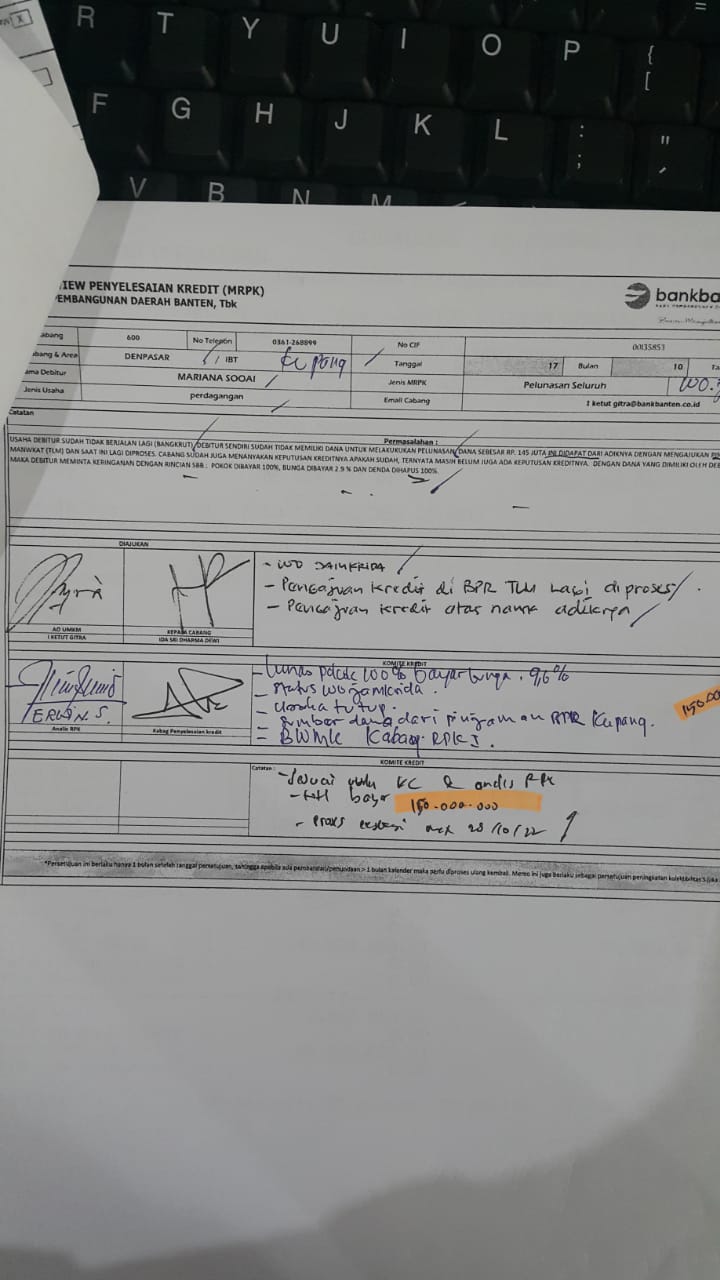 R T Y U I O P { [
F G H J K L : ; " '
V B N M
IEW PENYELESAIAN KREDIT (MRPK)
PEMBANGUNAN DAERAH BANTEN, Tbk
bankba
abang 600 No Telepon 0361-268899 No CIF 00135853
abang & Area DENPASAR / IBT Kupang Tanggal 17 Bulan 10 Ta
ama Debitur MARIANA SOOAI Jenis MRPK Pelunasan Seluruh WO.
Jenis Usaha perdagangan Email Cabang I ketut gitra@bankbanten.co.id
Catatan
Permasalahan :
USAHA DEBITUR SUDAH TIDAK BERJALAN LAGI (BANGKRUT), DEBITUR SENDIRI SUDAH TIDAK MEMILIKI DANA UNTUK MELAKUKUKAN PELUNASAN, DANA SEBESAR RP. 145 JUTA INI DIDAPAT DARI ADIKNYA DENGAN MENGAJUKAN
(TLM) DAN SAAT INI LAGI DIPROSES. CABANG SUDAH JUGA MENANYAKAN KEPUTUSAN KREDITNYA APAKAH SUDAH, TERNYATA MASIH BELUM JUGA ADA KEPUTUSAN KREDITNYA. DENGAN DANA YANG DIMILIKI OLEH DEB
MAKA DEBITUR MEMINTA KERINGANAN DENGAN RINCIAN SBB : POKOK DIBAYAR 100%, BUNGA DIBAYAR 2.9 % DAN DENDA DIHAPUS 100%.
DIAJUKAN
- WO JAMKRIDA
- Pengajuan kredit di BPR TLM lagi diproses
- Pengajuan kredit atas nama adiknya
AO UMKM KEPALA CABANG
I KETUT GITRA IDA SRI DHARMA DEWI
KOMITE KREDIT
- Lunas pokok 100% bayar bunga 9,6%
- Status WO Jamkrida.
- Usaha tutup.
- Sumber dana dari pinjaman BPR Kupang.
= BWMK Kabag RPKS.
150.00
ERWIN S.
Analis RPK Kabag Penyelesaian kredit
KOMITE KREDIT
Catatan :
- Sesuai KC & analis RPK
- bayar 150.000.000
- eksekusi 28/10/22
*Persetujuan ini berlaku hanya 1 bulan setelah tanggal persetujuan, sehingga apabila ada penundaan > 1 bulan kalender maka perlu diproses ulang kembali. Memo ini juga berlaku sebagai persetujuan peningkatan kolektibilitas